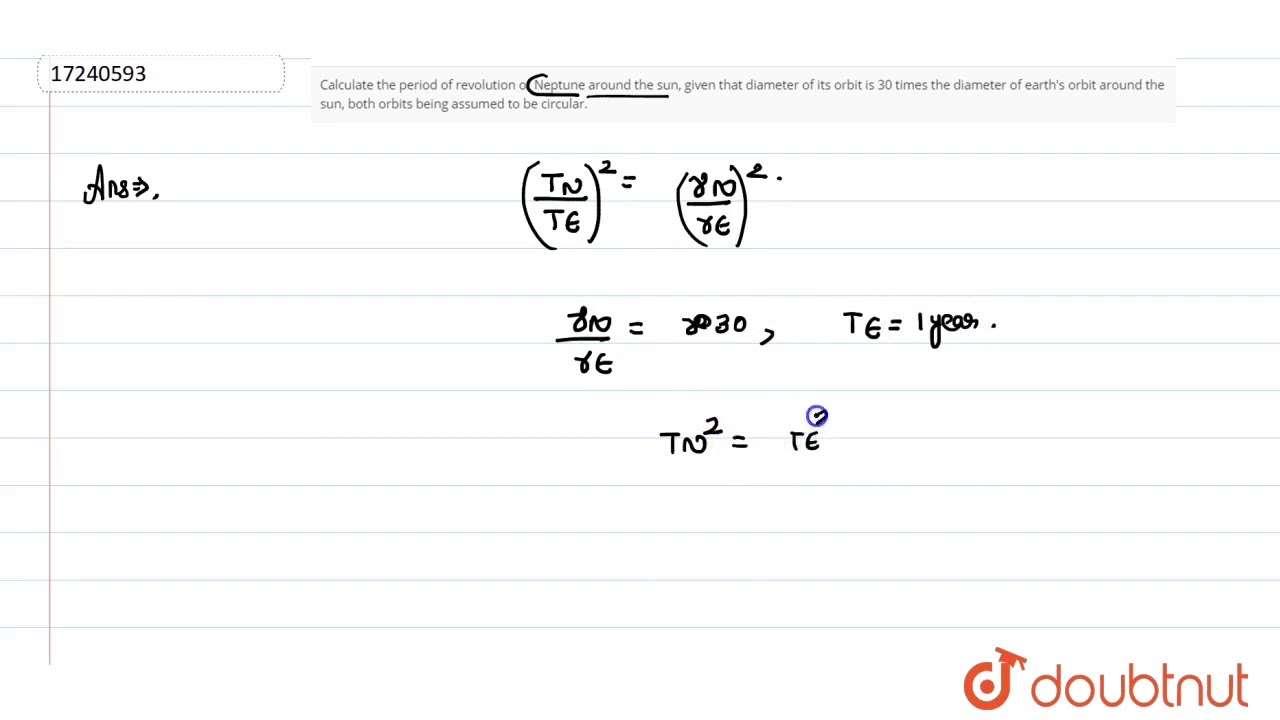 17240593
Calculate the period of revolution o Neptune around the sun, given that diameter of its orbit is 30 times the diameter of earth's orbit around the
sun, both orbits being assumed to be circular.
Ans⇒.
(TN/TE)² = (rN/rE)².
rN/rE = 30, TE = 1 year.
TN² = TE²
doubtnut